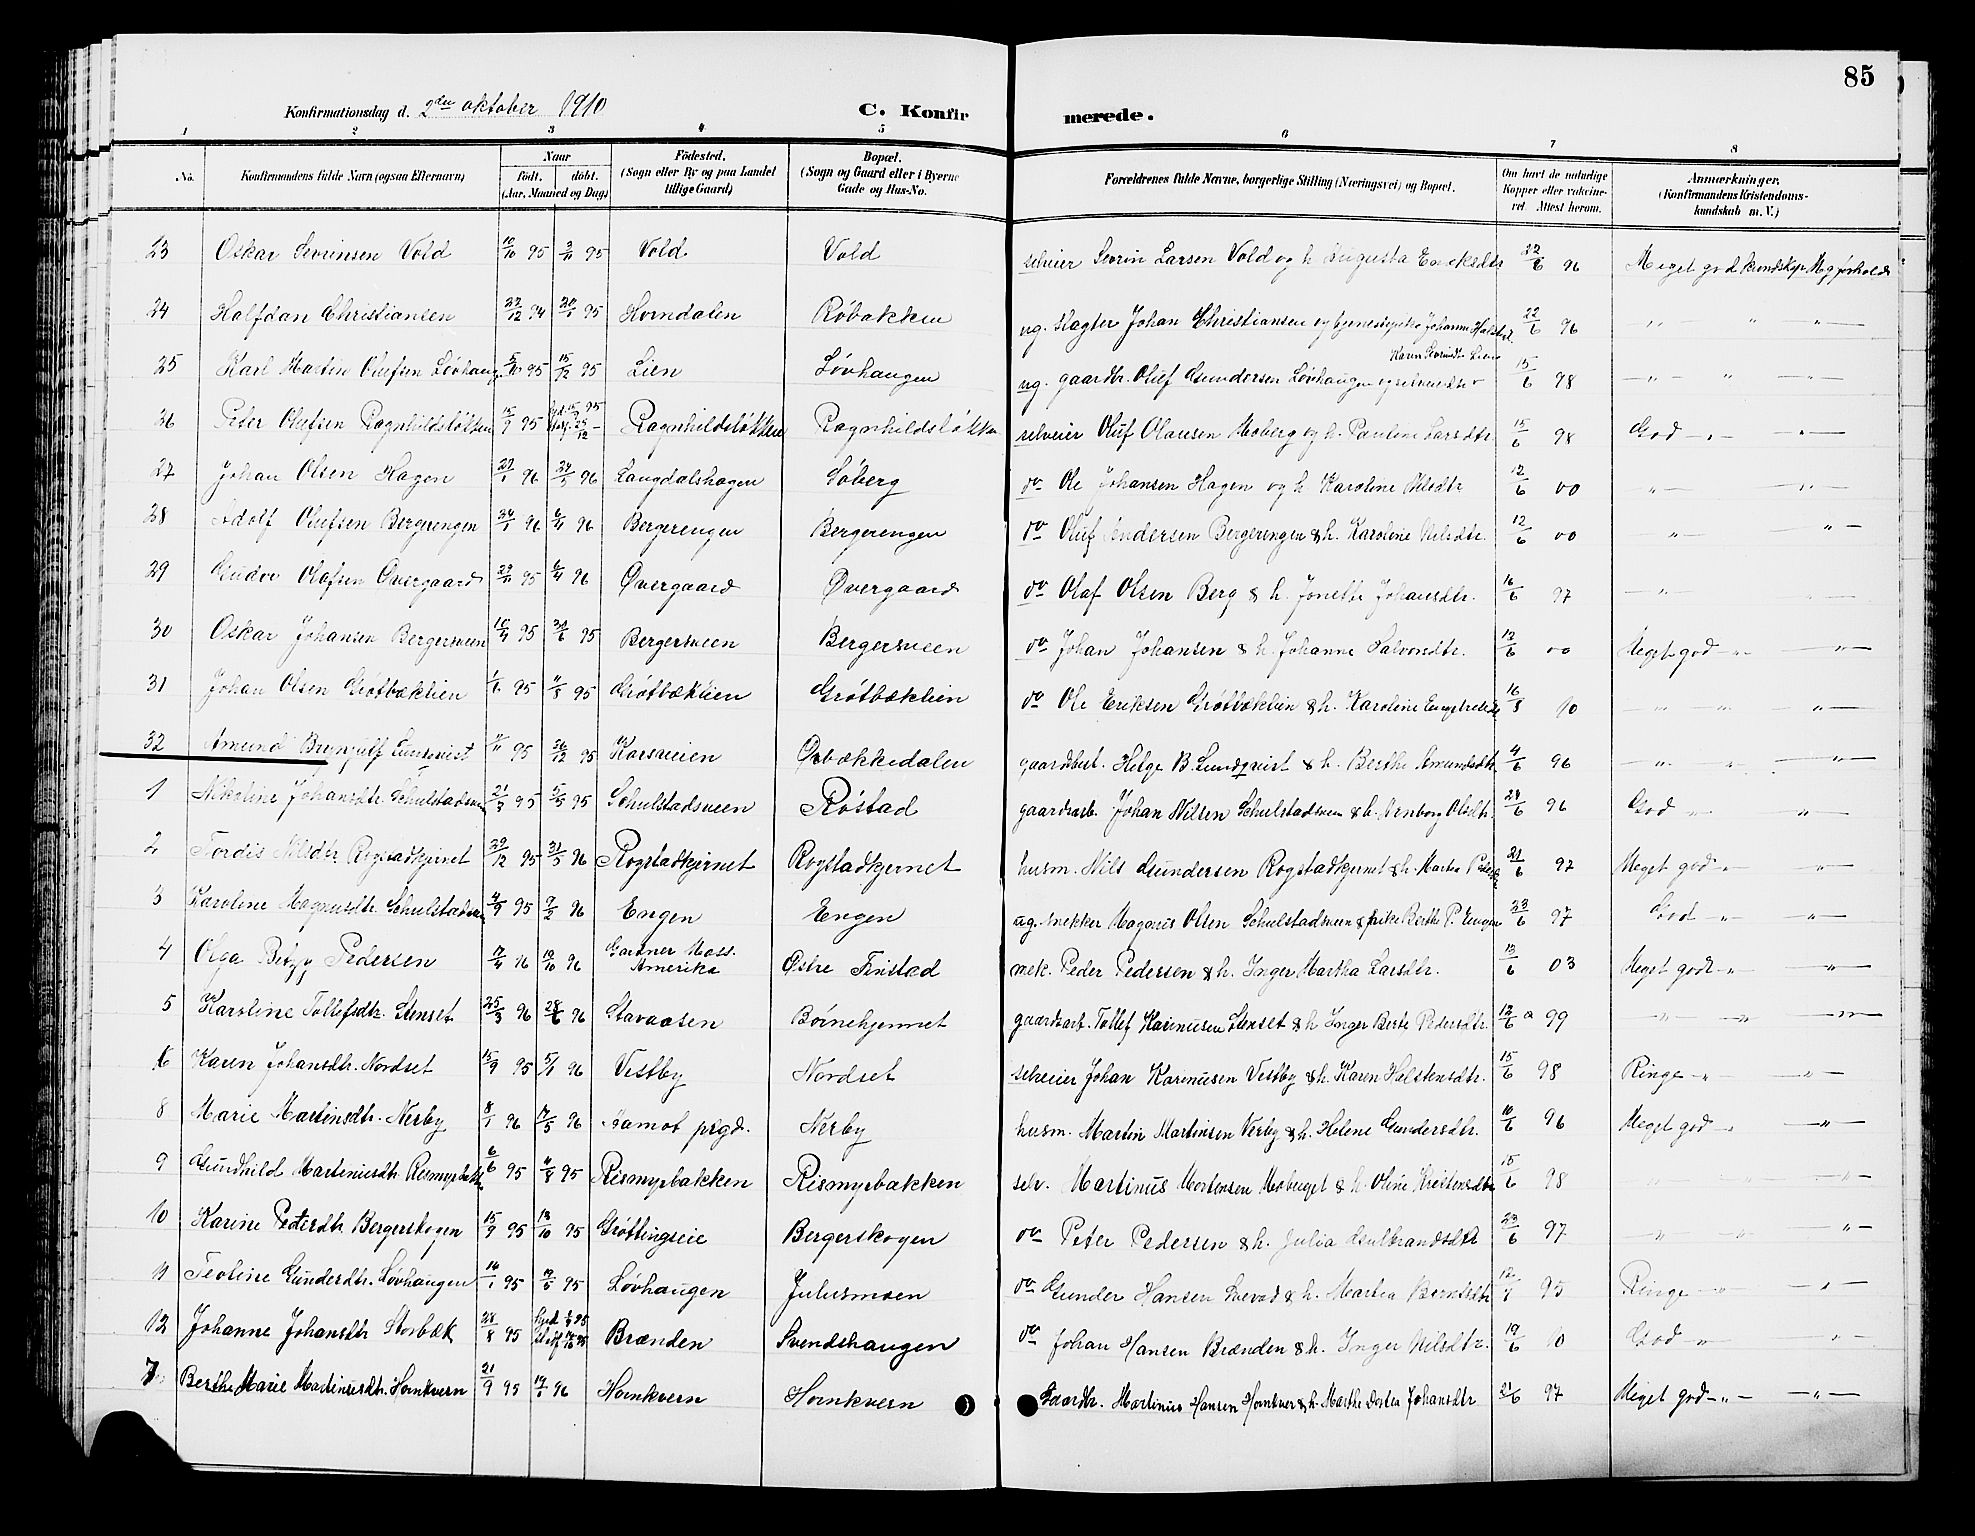 85
Konfirmationsdag d. 2den oktober 1910 C. Konfirmerede.
1 2 3 4 5 6 7 8
No. Konfirmandens fulde Navn (ogsaa Efternavn) Naar født. døbt. (Aar, Maaned og Dag) Fødested. (Sogn eller By og paa Landet tillige Gaard) Bopæl. (Sogn og Gaard eller i Byerne Gade og Hus-No. Forældrenes fulde Navne, borgerlige Stilling (Næringsvei) og Bopæl. Om havt de naturlige Kopper eller vakcineret Attest herom. Anmærkninger. (Konfirmandens Kristendomskundskab m. V.)
23 Oskar Sevrinsen Vold 10/10 95 3/11 95 Vold Vold selveier Sevrin Larsen Vold og h. Augusta 22/6 96 Meget god kundskap
24 Halfdan Christiansen 22/12 94 95 Horndalen Røbakken ug. slagter Johan Christiansen og tjenestepike Johanne 22/6 96 " " "
25 Karl Martin Olufsen Løvhaug 5/10 95 15/12 95 Lien Løvhaugen ug. gaardbr. Oluf Gundersen Løvhaugen 15/6 98 " " "
26 Peter Olufsen Ragnhildsløkken 15/9 95 Ragnhildsløkken Ragnhildsløkken selveier Oluf Olausen Moberg og h. Pauline Larsdtr. 15/6 98 God " "
27 Johan Olsen Hagen 27/1 96 24/5 96 Langdalshagen Søberg do Ole Johansen Hagen og h. Karoline 12/6 00 " "
28 Adolf Olufsen Bergerengen 24/1 96 6/4 96 Bergerengen Bergerengen do Oluf Andersen Bergerengen & h. Karoline Nilsdtr. 12/6 00 " "
29 Olafsen Øvergaard 29/11 95 6/4 96 Øvergaard Øvergaard do Olaf Olsen Berg & h. Jonette Johansdtr. 16/6 97 "
30 Oskar Johansen Bergersveen 95 95 Bergersveen Bergersveen do Johan Johansen & h. Johanne Halvorsdtr. 12/6 00 Meget god " "
31 Johan Olsen Grøtbæklien 95 95 Grøtbæklien Grøtbæklien do Ole Eriksen Grøtbæklien & h. Karoline 16/8 10 " " "
32 Amund Brynjulf Lundqvist 95 26/12 95 Korsveien Øvbækkedalen gaardbest. Helge B. Lundqvist & h. Berthe Amundsdtr. 4/6 96 " " "
1 Nikoline Johansdtr. Schulstadsveen 21/3 95 5/5 95 Schulstadsveen Røstad gaardsarb. Johan Nilsen Schulstadsveen & h. Olsdtr. 24/6 96 God " "
2 Tordis Nilsdtr Rogstadkjernet 29/12 95 31/5 96 Rogstadkjernet Rogstadkjernet husm. Nils Gundersen Rogstadkjernet & h. Martea 21/6 97 Meget god " "
3 Karoline Magnusdtr. Schulstadsveen 4/9 95 9/2 96 Engen Engen ug. snekker Magnus Olsen Schulstadsveen & pike Berthe P. Engen 23/6 97 God " "
4 Olga Betzy Pedersen 17/4 96 96 Gardner Mass. Amerika Østre Finstad mek. Peder Pedersen & h. Inger Martha Larsdtr. 13/6 03 Meget god " "
5 Karoline Tollefsdtr. Stenset 25/3 96 28/6 96 Stavaasen Børnehjemmet gaardsarb. Tollef Karinusen Stenset & h. Inger Berte Pedersdtr. 12/6 a 99 " " "
6 Karen Johansdtr. Nordset 15/9 95 5/1 96 Vestby Nordset selveier Johan Karenusen Vestby & h. Karen Halstensdtr. 15/6 98 Ringe " "
8 Marie Martinsdtr. Nerby 8/1 96 17/5 96 Aamot prgd. Nerby husm. Martin Martinsen Nerby & h. Helene Gundersdtr. 10/6 96 Meget god " "
9 Gundhild Martinusdtr. Rismyrbakken 6/6 95 4/8 95 Rismyrbakken Rismyrbakken selv. Martinus Mortensen & h. Oline Kristensdtr 15/6 98 " "
10 Karine Petersdtr. Bergerskogen 15/9 95 13/10 95 Grøttingseie Bergerskogen do Peter Pedersen & h. Julia Gulbrandsdtr 23/6 97 " " "
11 Teoline Gunderdtr. Løvhaugen 14/1 95 95 Løvhaugen Julusmoen do Gunder Hansen & h. Martea Berntsdtr 95 Ringe " "
12 Johanne Johansdtr Storbæk 28/8 95 Brænden Svendshaugen do Johan Hansen Brænden & h. Inger Nilsdtr. 19/6 10 God " "
7 Berthe Marie Martinusdtr. Hornkvern 21/9 95 96 Hornkvern Hornkvern Gaardbr. Martinius Hansen Hornkvern & h. Marthe Dortea Johansdtr 21/6 97 Meget god " "